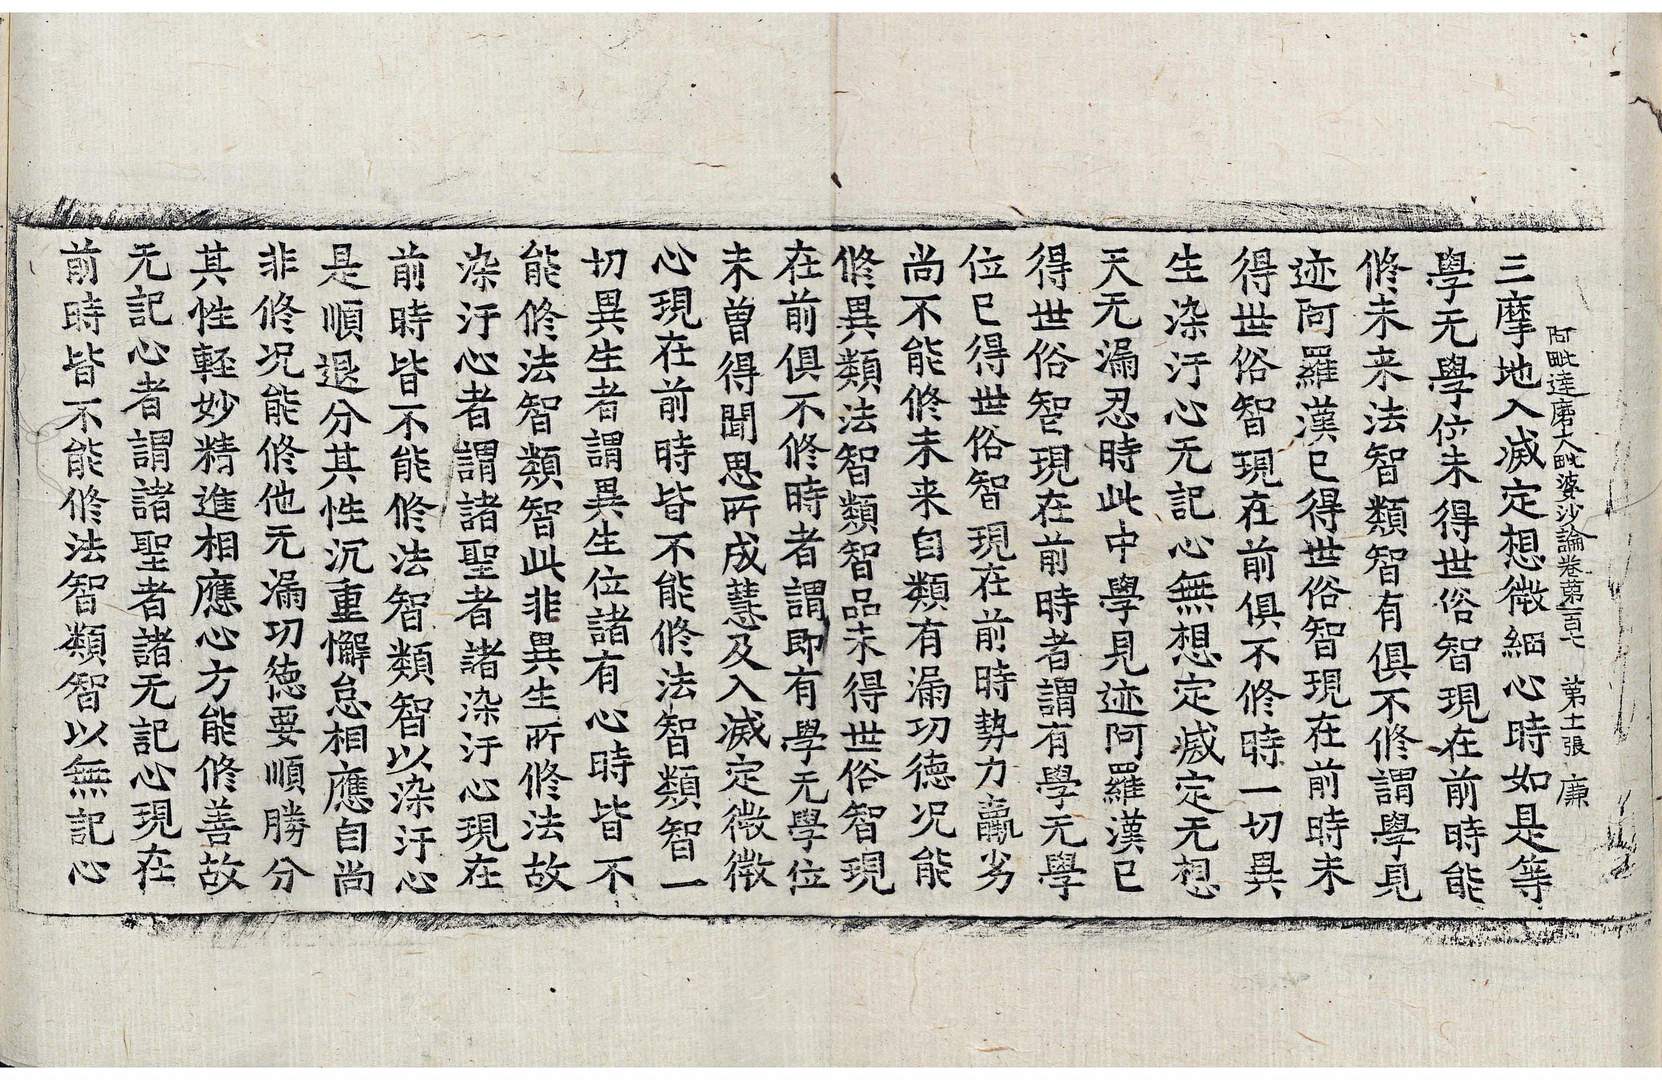 阿毗達磨大毗婆沙論卷第一百七 第十一張 廉
三摩地入滅定想微細心時如是等
學无學位未得世俗智現在前時能
修未来法智類智有俱不修謂學見
迹阿羅漢已得世俗智現在前時未
得世俗智現在前俱不修時一切異
生染汙心无記心無想定滅定无想
天无漏忍時此中學見迹阿羅漢已
得世俗智現在前時者謂有學无學
位已得世俗智現在前時勢力羸劣
尚不能修未来自類有漏功德况能
修異類法智類智品未得世俗智現
在前俱不修時者謂即有學无學位
未曾得聞思所成慧及入滅定微微
心現在前時皆不能修法智類智一
切異生者謂異生位諸有心時皆不
能修法智類智此非異生所修法故
染汙心者謂諸聖者諸染汙心現在
前時皆不能修法智類智以染汙心
是順退分其性沉重懈怠相應自尚
非修况能修他无漏功德要順勝分
其性輕妙精進相應心方能修善故
无記心者謂諸聖者諸无記心現在
前時皆不能修法智類智以無記心